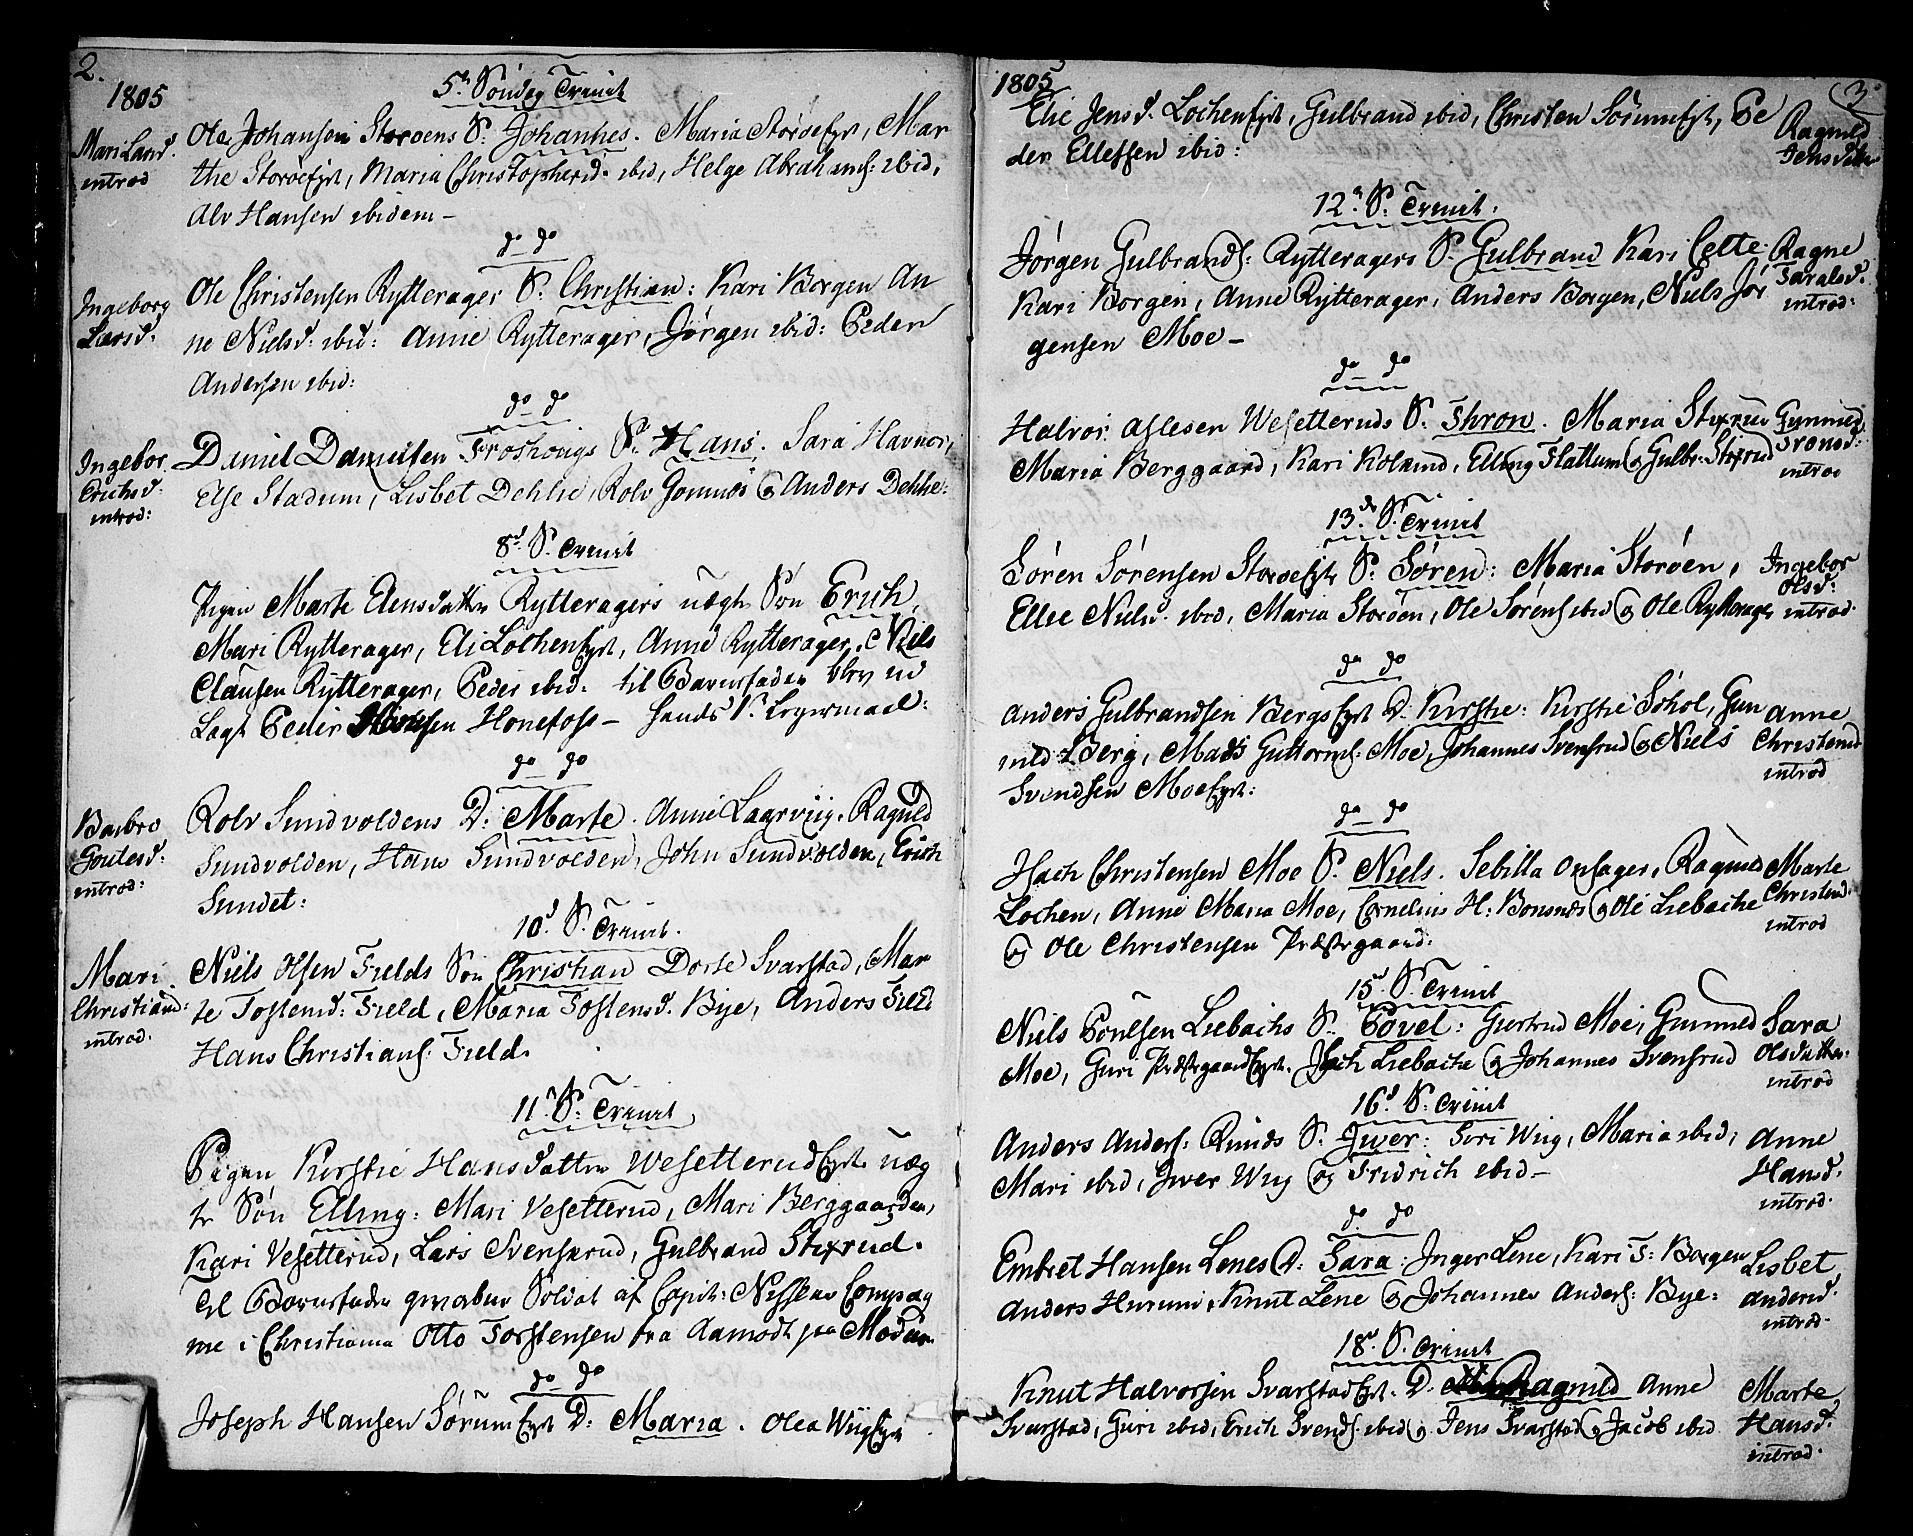 2.
1805
5te Søndag Trinit
Mari Larsd.
introd
Ole Johansen Storøens S: Johannes. Maria Storøeejet, Mar
the Storøeejet, Maria Christophersd. ibid, Helge Abrahams: ibid,
Alv Hansen ibidem –
do – do
Ingeborg
Larsd.
Ole Christensen Rytterager S: Christian: Kari Borgen An
ne Nielsd: ibid: Anne Rytterager, Jørgen ibid: Peder
Andersen ibid:
do – do
Ingebor
Erichsd:
introd:
Daniel Danielsen Froshougs S: Hans. Sara Havnor,
Else Stadum, Lisbet Dehlie, Rolv Gomnes og Anders Dehlie:
8d. S. Trinit
Pigen Marte Elensdatter Rytteragers uægte Søn Erich,
Mari Rytterager, Eli Lochenejet, Anne Rytterager, Niels
Clausen Rytterager, Peder ibid: til Barnefader blev ud
lagt Peder Hansen Honefoss – hands 1ste Legermaal:
do – do
Barbro
Goutesd:
introd:
Rolv Sundvoldens D: Marte. Anne Laarviig, Ragnild
Sundvolden, Hans Sundvolden, John Sundvolden, Erich
Sundet:
10d. S. Trinit.
Mari
Christiansd:
introd.
Niels Olsen Fields Søn Christian Dorte Svarstad, Mar
te Tostensd: Field, Maria Tostensd. Bye, Anders Field
Hans Christians: Field.
11te S: Trinit
Pigen Kirstie Hansdatter Wesetterudejet uæg
te Søn Elling: Mari Vesetterud, Mari Berggaarden,
Kari Vesetterud, Lars Svenserud, Gulbrand Stixrud.
til Barnefader Soldat af Capit: Compag
nie i Christiania Otto Torstensen fra Aamodt paa Modum
do – do
Joseph Hansen Sørumejet D: Maria. Olea Wiigejet
1805
3
Elie Jensd. Lochenejet, Gulbrand ibid, Christen Sørumejet, Pe
der Ellefsen ibid:
Ragnild
Jensdatter
12te S: Trinit.
Jørgen Gulbrands: Rytteragers S. Gulbrand Kari
Kari Borgen, Anne Rytterager, Anders Borgen, Niels Jør
gensen Moe –
Ragne
Haralsd.
introd:
do – do
Halvor Aslesen Wesetteruds S: Thron. Maria Stixrud
Maria Berggaard, Kari Kolsrud, Elling Flattum og Gulbr: Stixrud
Gunnild
Tronsd:
introd
13de S. Trinit
Søren Sørensen Storøeejets S: Søren: Maria Storøen,
Ellie Nielsd. ibid, Maria Storøen, Ole Sørens ibid og Ole Rytterager
Ingebor
Olsd:
introd.
do do
Anders Gulbrandsen Bergsejet D. Kirstie: Kirstie Sohol, Gun
nild Berg, Mads Guttorms: Moe, Johannes Svensrud og Niels
Svendsen Moeejet:
Anne
Christensd
introd
do – do
Isach Christensen Moe S. Niels. Sebilla Onsager, Ragnild
Lochen, Anne Maria Moe, Cornelius H: Bonsnæs og Ole Liebache
og Ole Christensen Præstegaard:
Marte
Christensd.
introd
15d S. Trinit
Niels Poulsen Liebachs S. Povel: Giertrud Moe, Gunnild
Moe, Guri Præstegaardejet. Isach Liebache og Johannes Svensrud
Sara
Olsdatter.
introd
16d. S. Trinit
Anders Anders: Runds S. Iwer: Siri Wiig, Maria ibid,
Mari ibid, Iwer Wiig og Fridrich ibid –
Anne
Hansd.
introd.
do do
Embret Hansen Lenes D: Sara. Inger Lene, Kari T: Borgen
Anders Hurum, Knut Lene og Johannes Anders: Bye:
Lisbet
Andersd.
introd.
18d. S. Trinit
Knut Halvorsen Svarstadejet. D. Ragnild Anne
Svarstad, Guri ibid, Erich Svends. ibid og Jens Svarstad og Jacob ibid
Marte
Hansd.
introd.